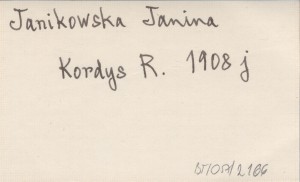 Janikowska Janina
Kordys R. 1908 j
BT/OP/2166